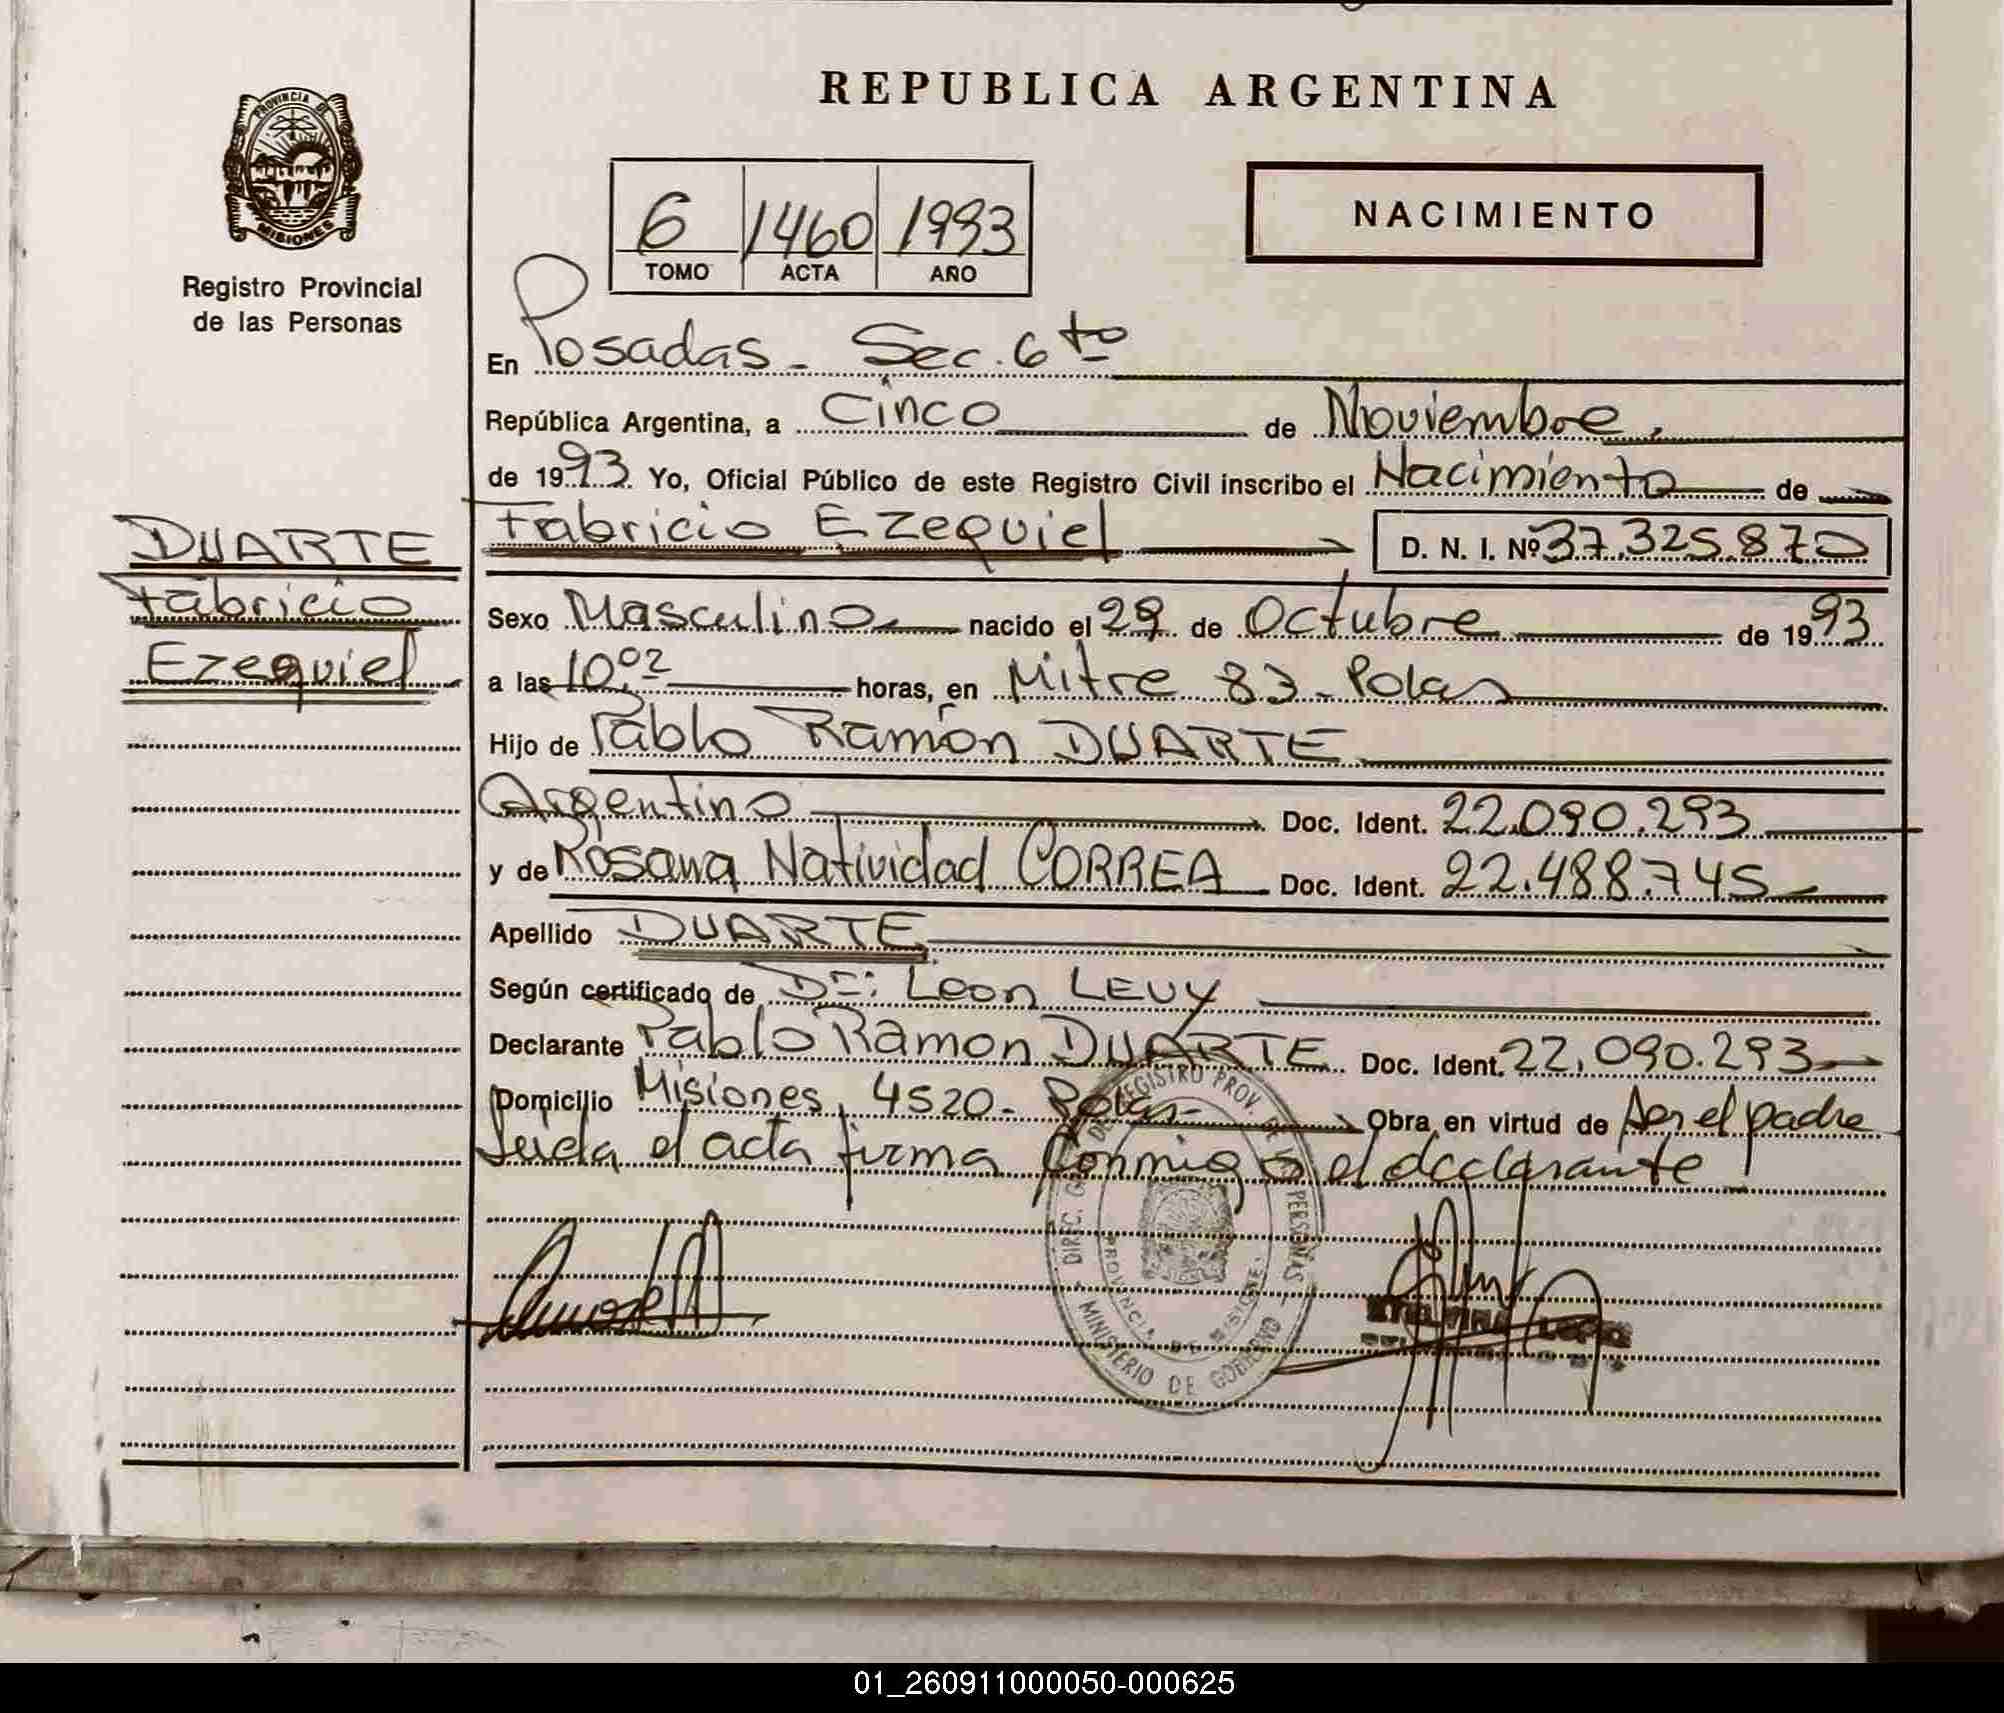 REPUBLICA ARGENTINA
PROVINCIA DE
MISIONES
Registro Provincial
de las Personas
6 1460 1993
TOMO ACTA AÑO
NACIMIENTO
En Posadas - Sec. 6to
República Argentina, a Cinco de Noviembre,
de 1993. Yo, Oficial Público de este Registro Civil inscribo el Nacimiento de
Fabricio Ezequiel D. N. I. Nº 37.325.870
DUARTE
Fabricio
Ezequiel
Sexo Masculino nacido el 29 de Octubre de 1993
a las 10:02 horas, en Mitre 83 - Pdas
Hijo de Pablo Ramón DUARTE
Argentino Doc. Ident. 22.090.293
y de Rosana Natividad CORREA Doc. Ident. 22.488.745
Apellido DUARTE
Según certificado de Dr: Leon LEVY
Declarante Pablo Ramon DUARTE Doc. Ident. 22.090.293
Domicilio Misiones 4520 - Pdas - Obra en virtud de ser el padre
Leida el acta firma Conmigo el declarante
DIREC. GRAL. DE REGISTRO PROV. DE PERSONAS
PROVINCIA DE MISIONES
MINISTERIO DE GOBIERNO
01_260911000050-000625